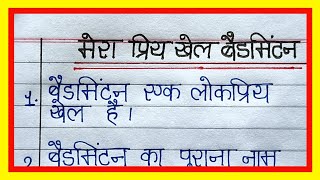 मेरा प्रिय खेल बैडमिंटन
1. बैडमिंटन एक लोकप्रिय
खेल है।
2 बैडमिंटन का पुराना नाम